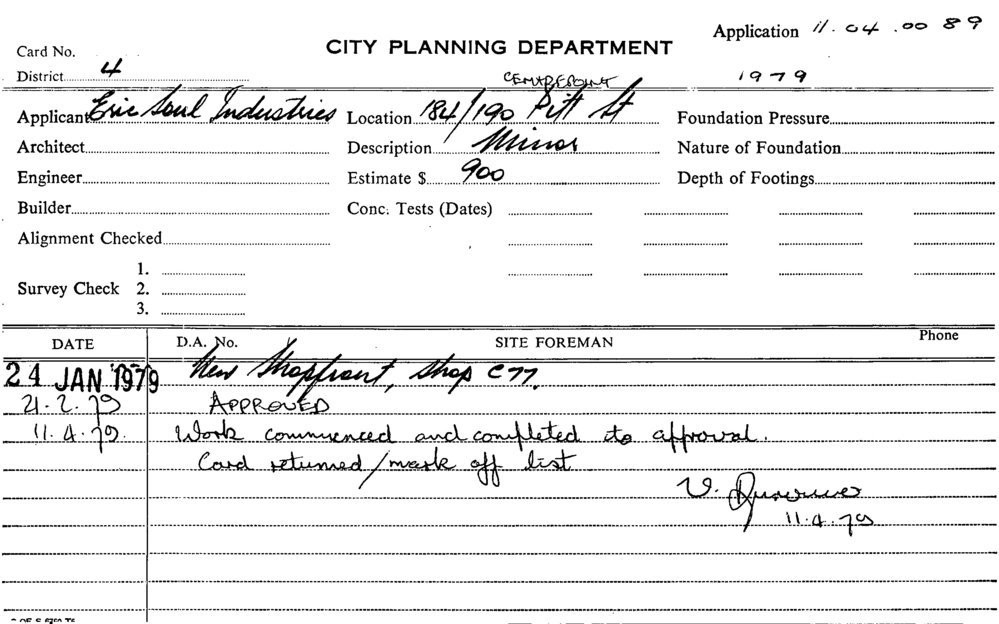 Application 11.04.0089
Card No.
CITY PLANNING DEPARTMENT
District 4
CENTREPOINT
1979
Applicant Eric Soul Industries Location 184/190 Pitt St Foundation Pressure
Architect Description Minor Nature of Foundation
Engineer Estimate $ 900 Depth of Footings
Builder Conc. Tests (Dates)
Alignment Checked
1.
Survey Check 2.
3.
DATE D.A. No. SITE FOREMAN Phone
24 JAN 1979 New Shopfront, Shop C77.
21.2.79 APPROVED
11.4.79. Work commenced and completed to approval.
Card returned/mark off list
V.
11.4.79